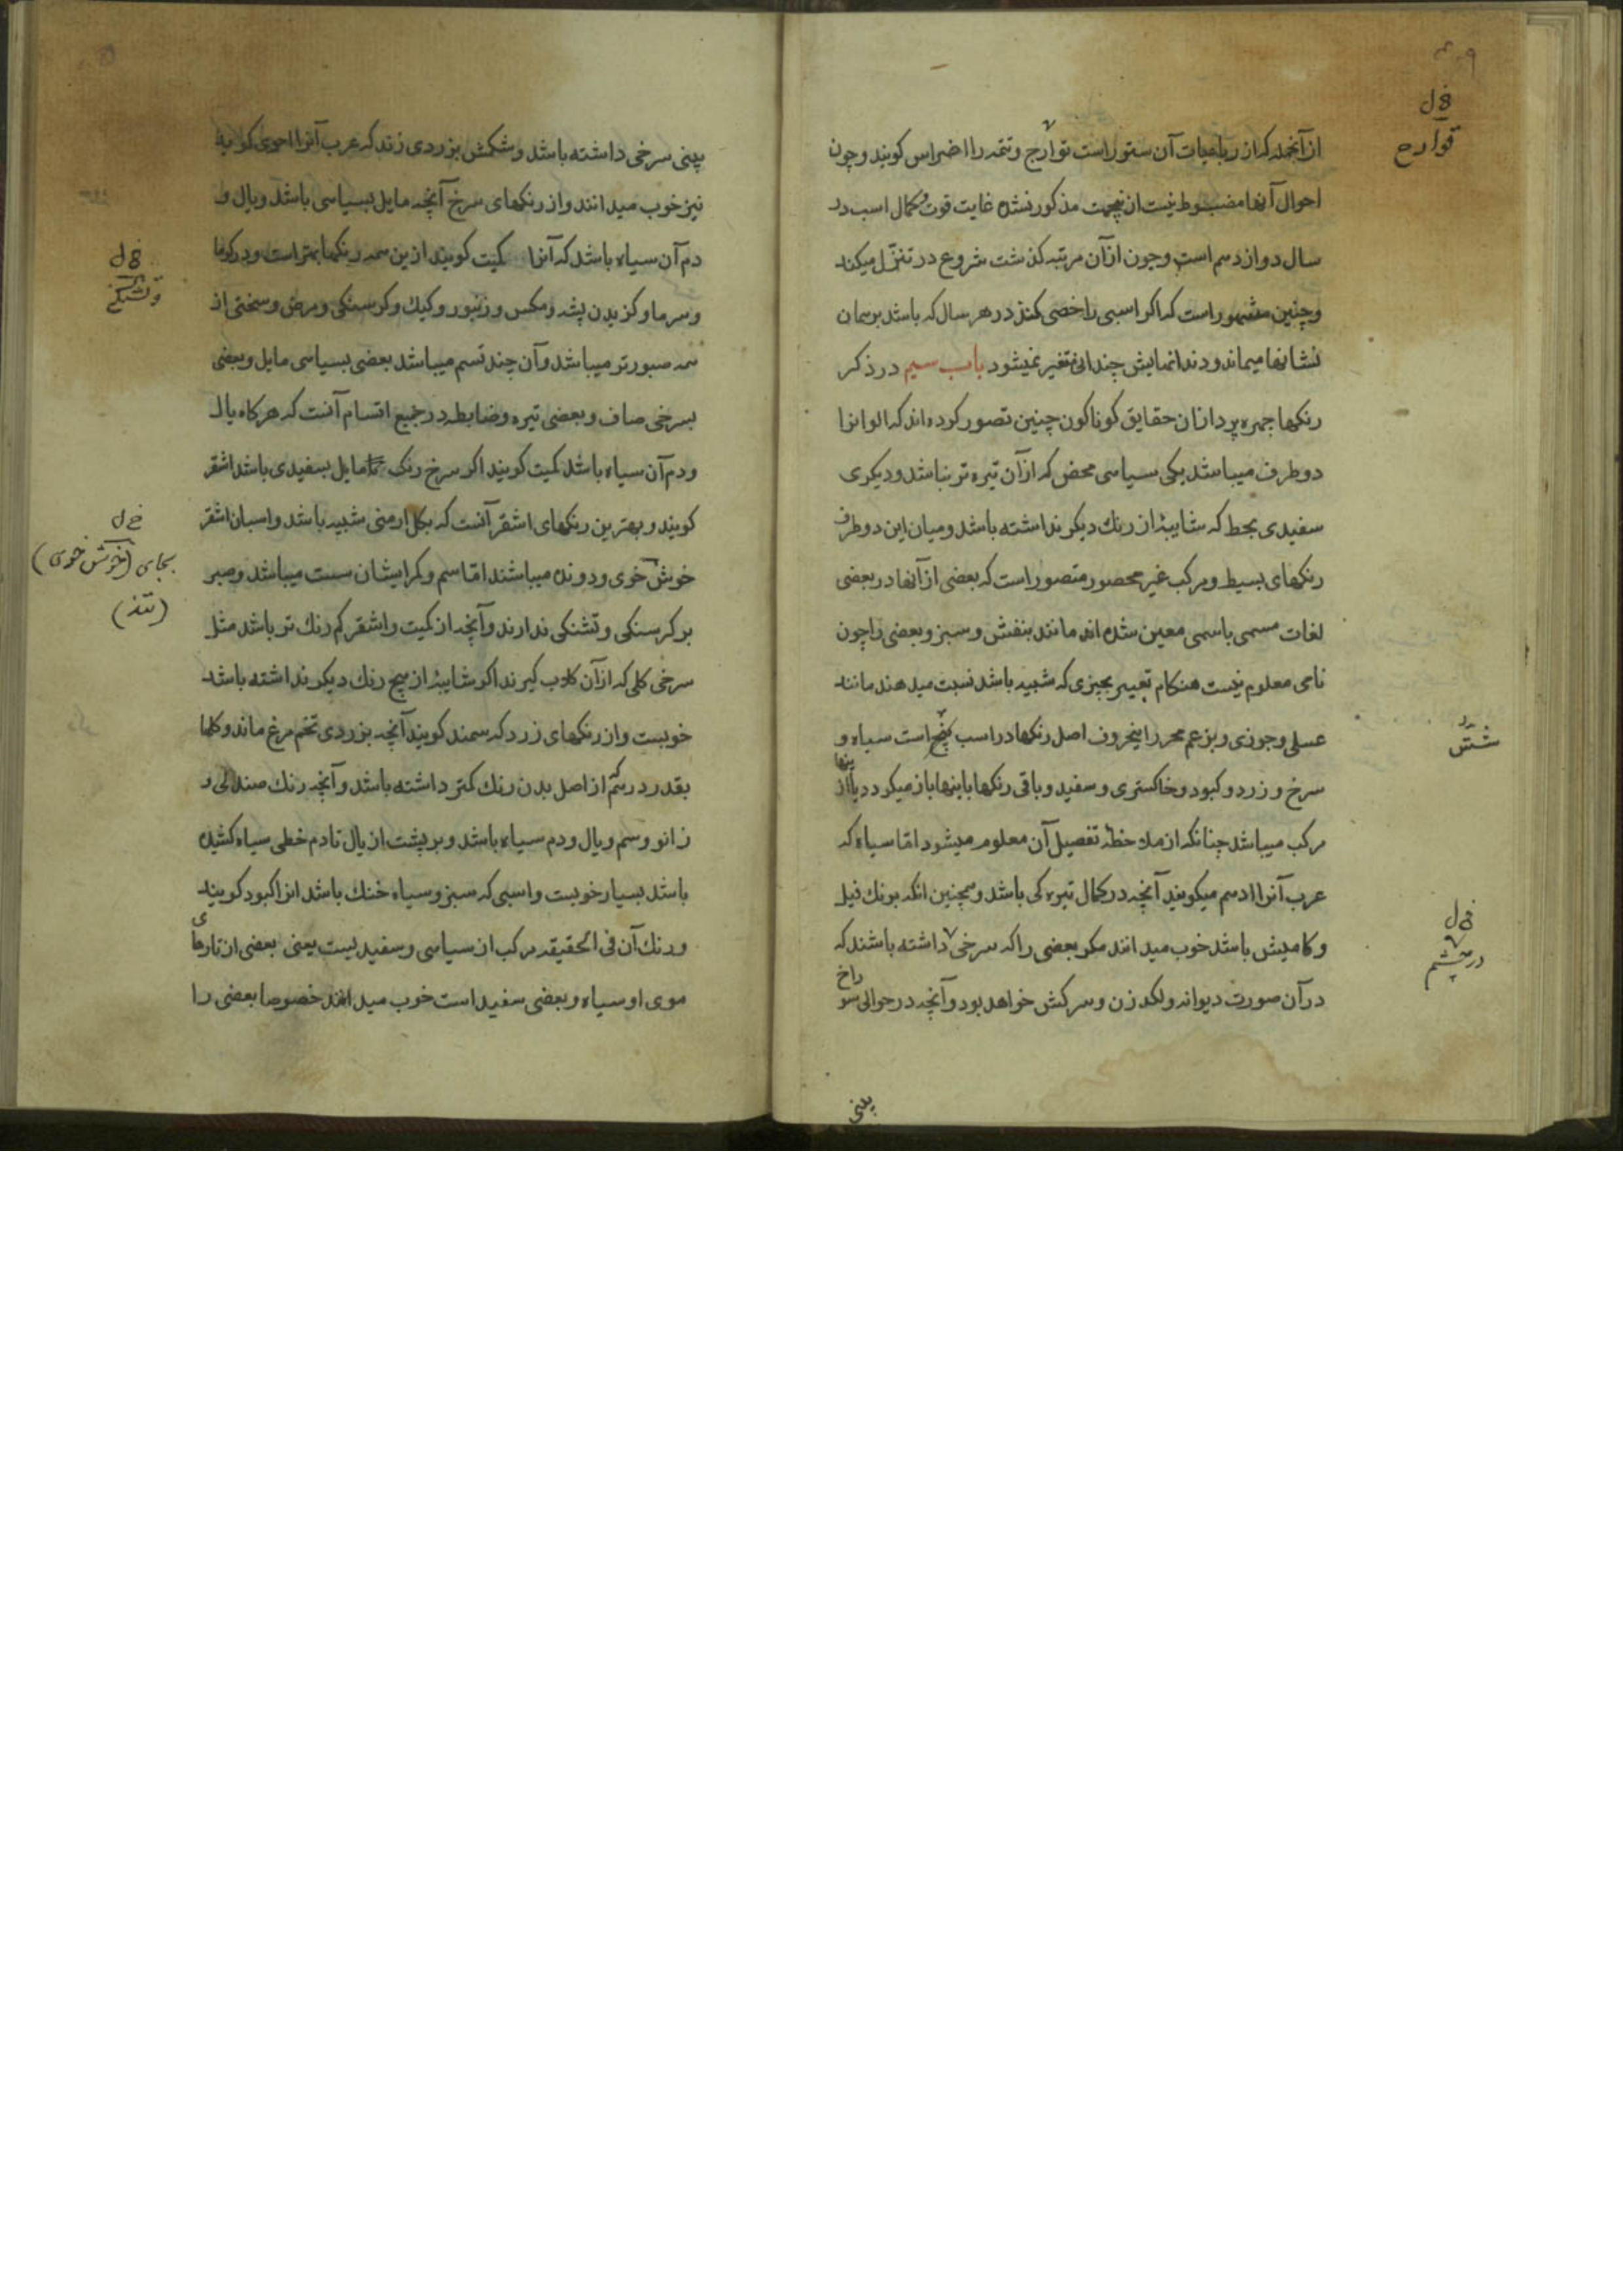 ۹
خ ل
قوارح
از آنجمله که از رباعیات آن ستور است توارج و تتمه را اضراس کویند و چون
احوال آنها مضبوط نیست ازینجهت مذکور نشده غایت قوت و کمال اسب در
سال دوازدهم است و چون ازآن مرتبه کذشت شروع در تنزّل میکند
و چنین مشهور است که اکر اسبی را خصی کنند در هر سال که باشد بر همان
نشانها میماند و دندانهایش چندانی متغیر نمیشود باب سیم در ذکر
رنکها چهره پردازان حقایق کوناکون چنین تصور کرده اند که الوانرا
دو طرف میباشد یکی سیاهی محض که ازآن تیره تر نباشد و دیکری
سفیدی بحط که شایبهٔ از رنك دیکر نداشته باشد و میان این دو طرف
رنکهای بسیط و مرکب غیر محصور متصور است که بعضی از آنها در بعضی
لغات مسمی باسمی معین شده اند مانند بنفش و سبز و بعضی را چون
نامی معلوم نیست هنکام تعبیر بچیزی که شبیه باشد نسبت میدهند مانند
عسلی و جوزی و بزعم محرر اینحروف اصل رنکها در اسب پنج است سیاه و
شش
سرخ و زرد و کبود و خاکستری و سفید و باقی رنکها باینها باز میکردد یا از
ینها
مرکب میباشد چنانکه از ملاحظه تفصیل آن معلوم میشود امّا سیاه که
عرب آنرا ادهم میکویند آنچه در کمال تیره کی باشد و همچنین انکه برنك فیل
و کامیش باشد خوب میدانند مکر بعضی را که سرخی داشته باشند که
خ ل
در چشم
درآن صورت دیوانه و لکد زن و سرکش خواهد بود و آنچه در حوالی سو
راخ
بینی
بینی سرخی داشته باشد و شکمش بزردی زند که عرب آنرا احوی کویند
نیز خوب میدانند و از رنکهای سرخ آنچه مایل بسیاهی باشد و یال و
دم آن سیاه باشد که آنرا کمیت کویند ازین همه رنکها بهتر است و در کرما
خ ل
و تشنکی
و سرما و کزیدن پشه و مکس و زنبور و کیك و کرسنکی و مرض و سختی از
همه صبورتر میباشد و آن چند قسم میباشد بعضی بسیاهی مایل و بعضی
بسرخی صاف و بعضی تیره و ضابطه در جمیع اقسام آنست که هرکاه یال
و دم آن سیاه باشد کمیت کویند اکر سرخ رنك مایل بسفیدی باشد اشقر
کویند و بهترین رنکهای اشقر آنست که بکل ارمنی شبیه باشد و اسبان اشقر
خ ل
بجای (خوش خوی)
(تند)
خوش خوی و دونده میباشند امّا سم و کرایشان سست میباشد و صبر
بر کرسنکی و تشنکی ندارند و آنچه از کمیت و اشقر کم رنك تر باشد مثل
سرخی کلی که ازآن کلاب کیرند اکر شایبهٔ از هیچ رنك دیکر نداشته باشد
خوبست و از رنکهای زرد که سمند کویند آنچه بزردی تخم مرغ ماند و کلها
بقدر درهم از اصل بدن رنك کمتر داشته باشد و آنچه رنك صندلی و
زانو و سم و یال و دم سیاه باشد و بر پشت از یال تا دم خطی سیاه کشیده
باشد بسیار خوبست و اسبی که سبز و سیاه خنك باشد انرا کبود کویند
و رنك آن فی الحقیقه مرکب از سیاهی و سفیدیست یعنی بعضی از تارهای
موی او سیاه و بعضی سفید است خوب میدانند خصوصا بعضی را